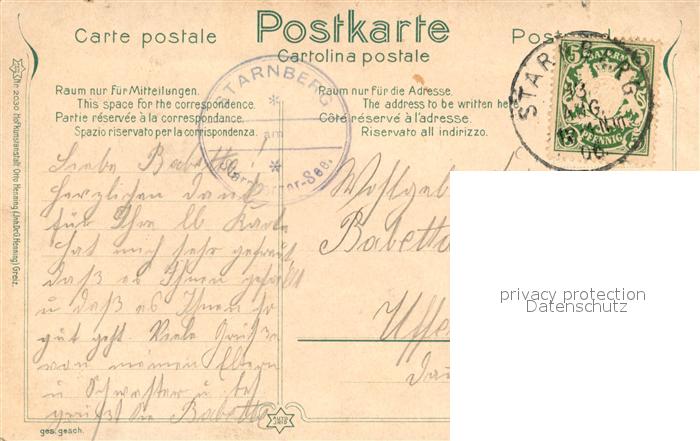 Carte postale Postkarte Post
Cartolina postale
Raum nur für Mitteilungen.
This space for the correspondence.
Partie réservée à la correspondance.
Spazio riservato per la corrispondenza.
Raum nur für die Adresse.
The address to be written he
Côté réservé à l'adresse.
Riservato all indirizzo.
STARNBERG
am
Starnberger-See.
BAYERN
5
PFENNIG
STARNBERG
AUG.
Liebe Babette!
Herzlichen Dank
für Ihre lb Karte
hat mich sehr gefreut
daß es Ihnen gefällt
u daß es Ihnen so
gut geht. Viele Grüße
von meinen Eltern
u Schwester u
grüßt Sie Babette
Wohlgeb
Babette
Uffe
privacy protection
Datenschutz
Nr 2030 Hofkunstanstalt Otto Henning (Inh. Henning) Greiz.
ges. gesch.